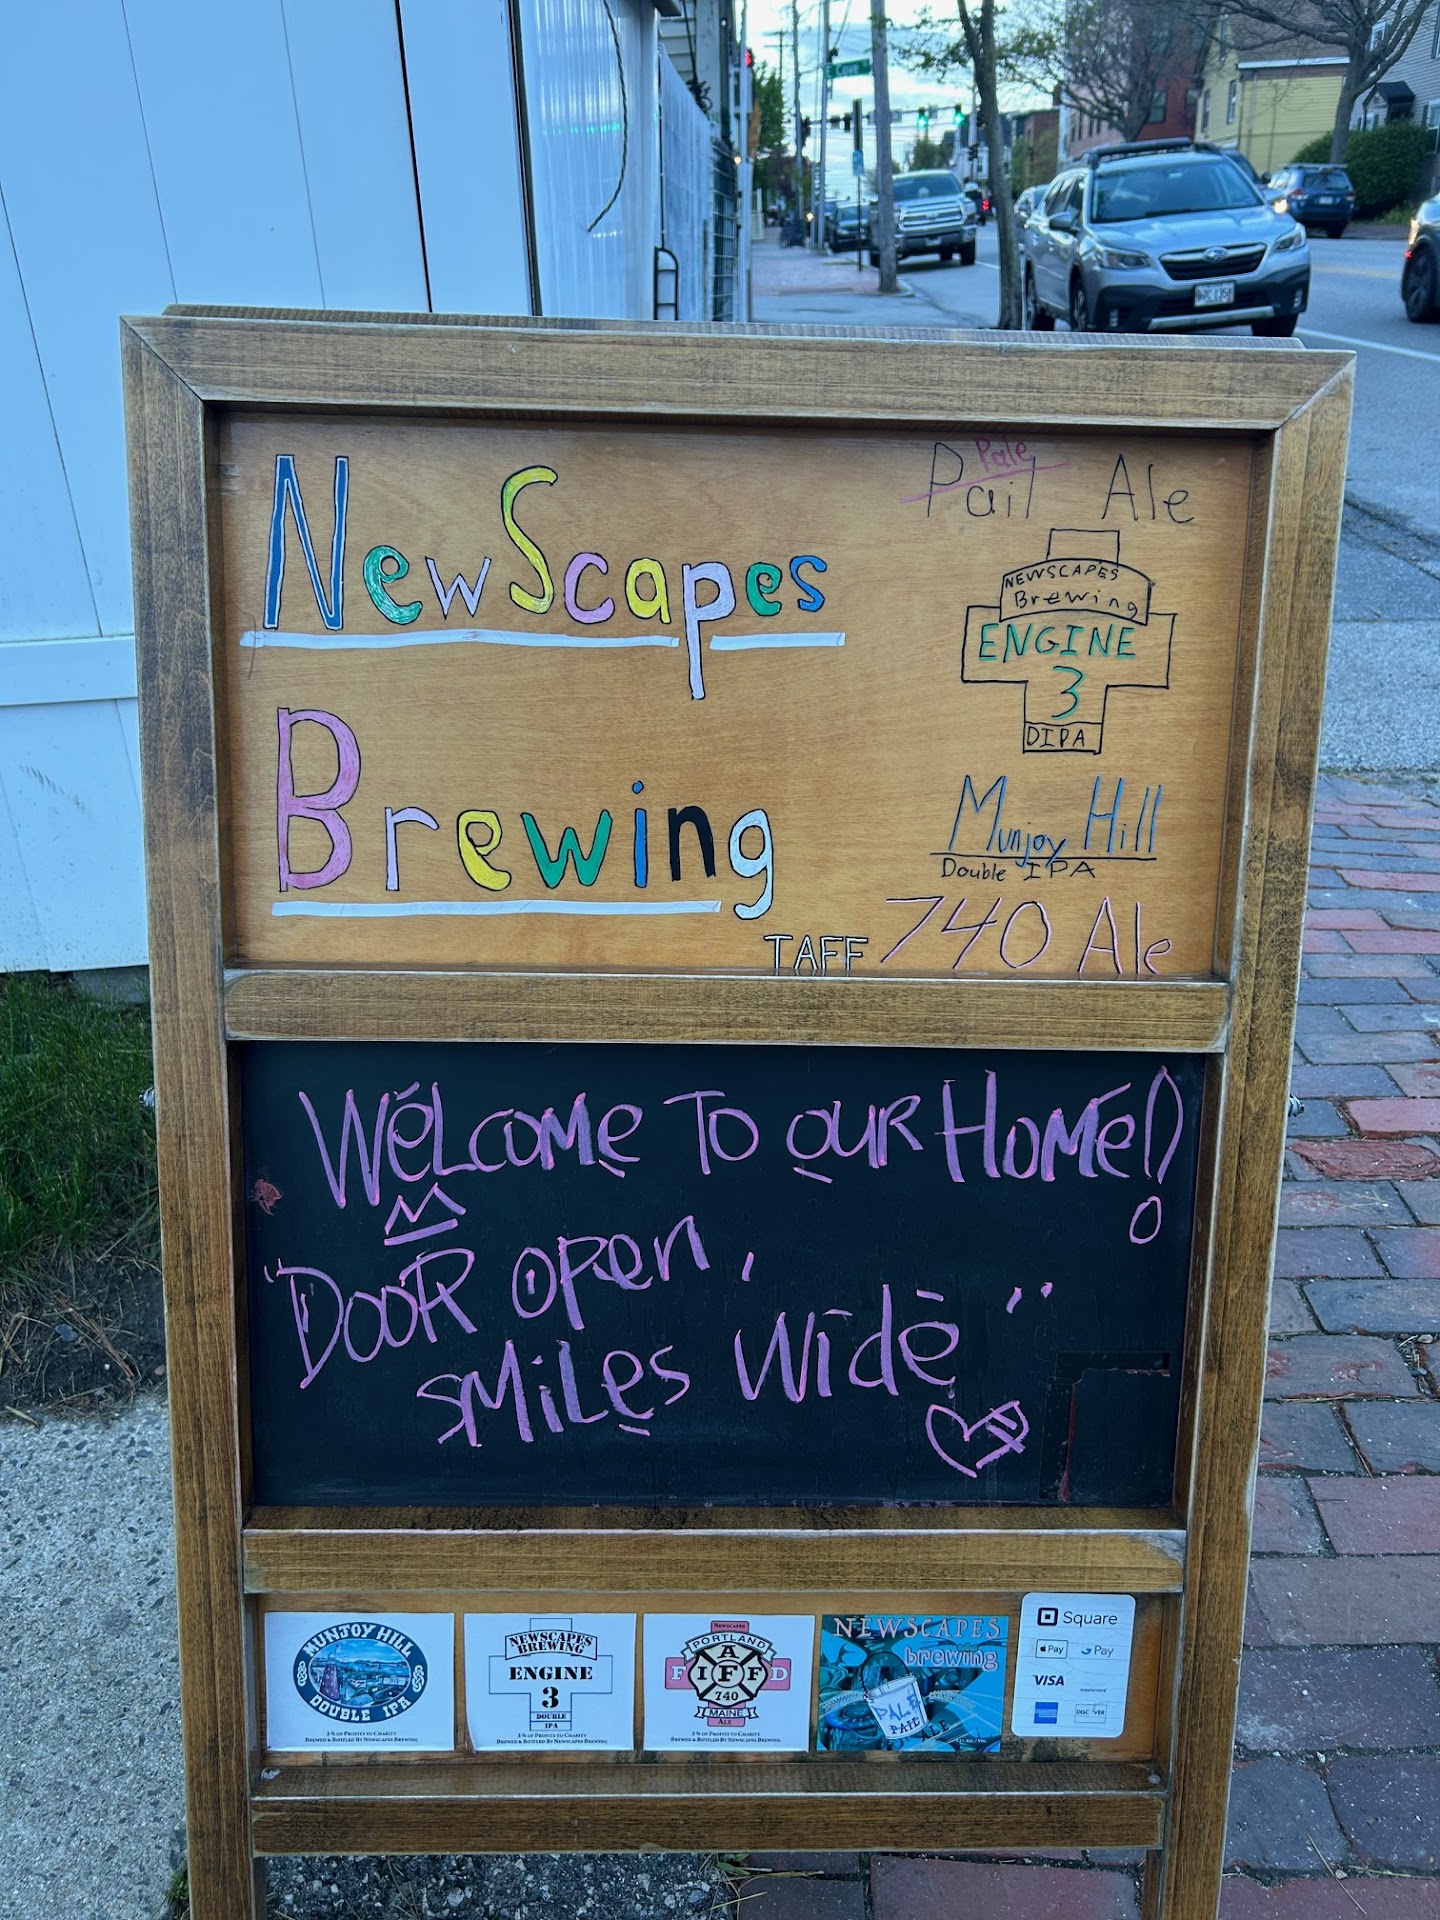 NewScapes
Brewing
TAFF
Pale
Pail Ale
NEWSCAPES
Brewing
ENGINE
3
DIPA
Munjoy Hill
Double IPA
740 Ale
WeLCOMe TO OUR HOMe!
"DOOR OPen,
SMiLes WiDe"
MUNJOY HILL
DOUBLE IPA
3% OF PROFITS TO CHARITY
BREWED & BOTTLED BY NEWSCAPES BREWING
NEWSCAPES
BREWING
ENGINE
3
DOUBLE
IPA
3% OF PROFITS TO CHARITY
BREWED & BOTTLED BY NEWSCAPES BREWING
NEWSCAPES
PORTLAND
A
F IFF D
740
MAINE
ALE
3% OF PROFITS TO CHARITY
BREWED & BOTTLED BY NEWSCAPES BREWING
NEWSCAPES
brewing
PALE
PAIL
ALE
Square
Pay
Pay
VISA
mastercard
DISCOVER